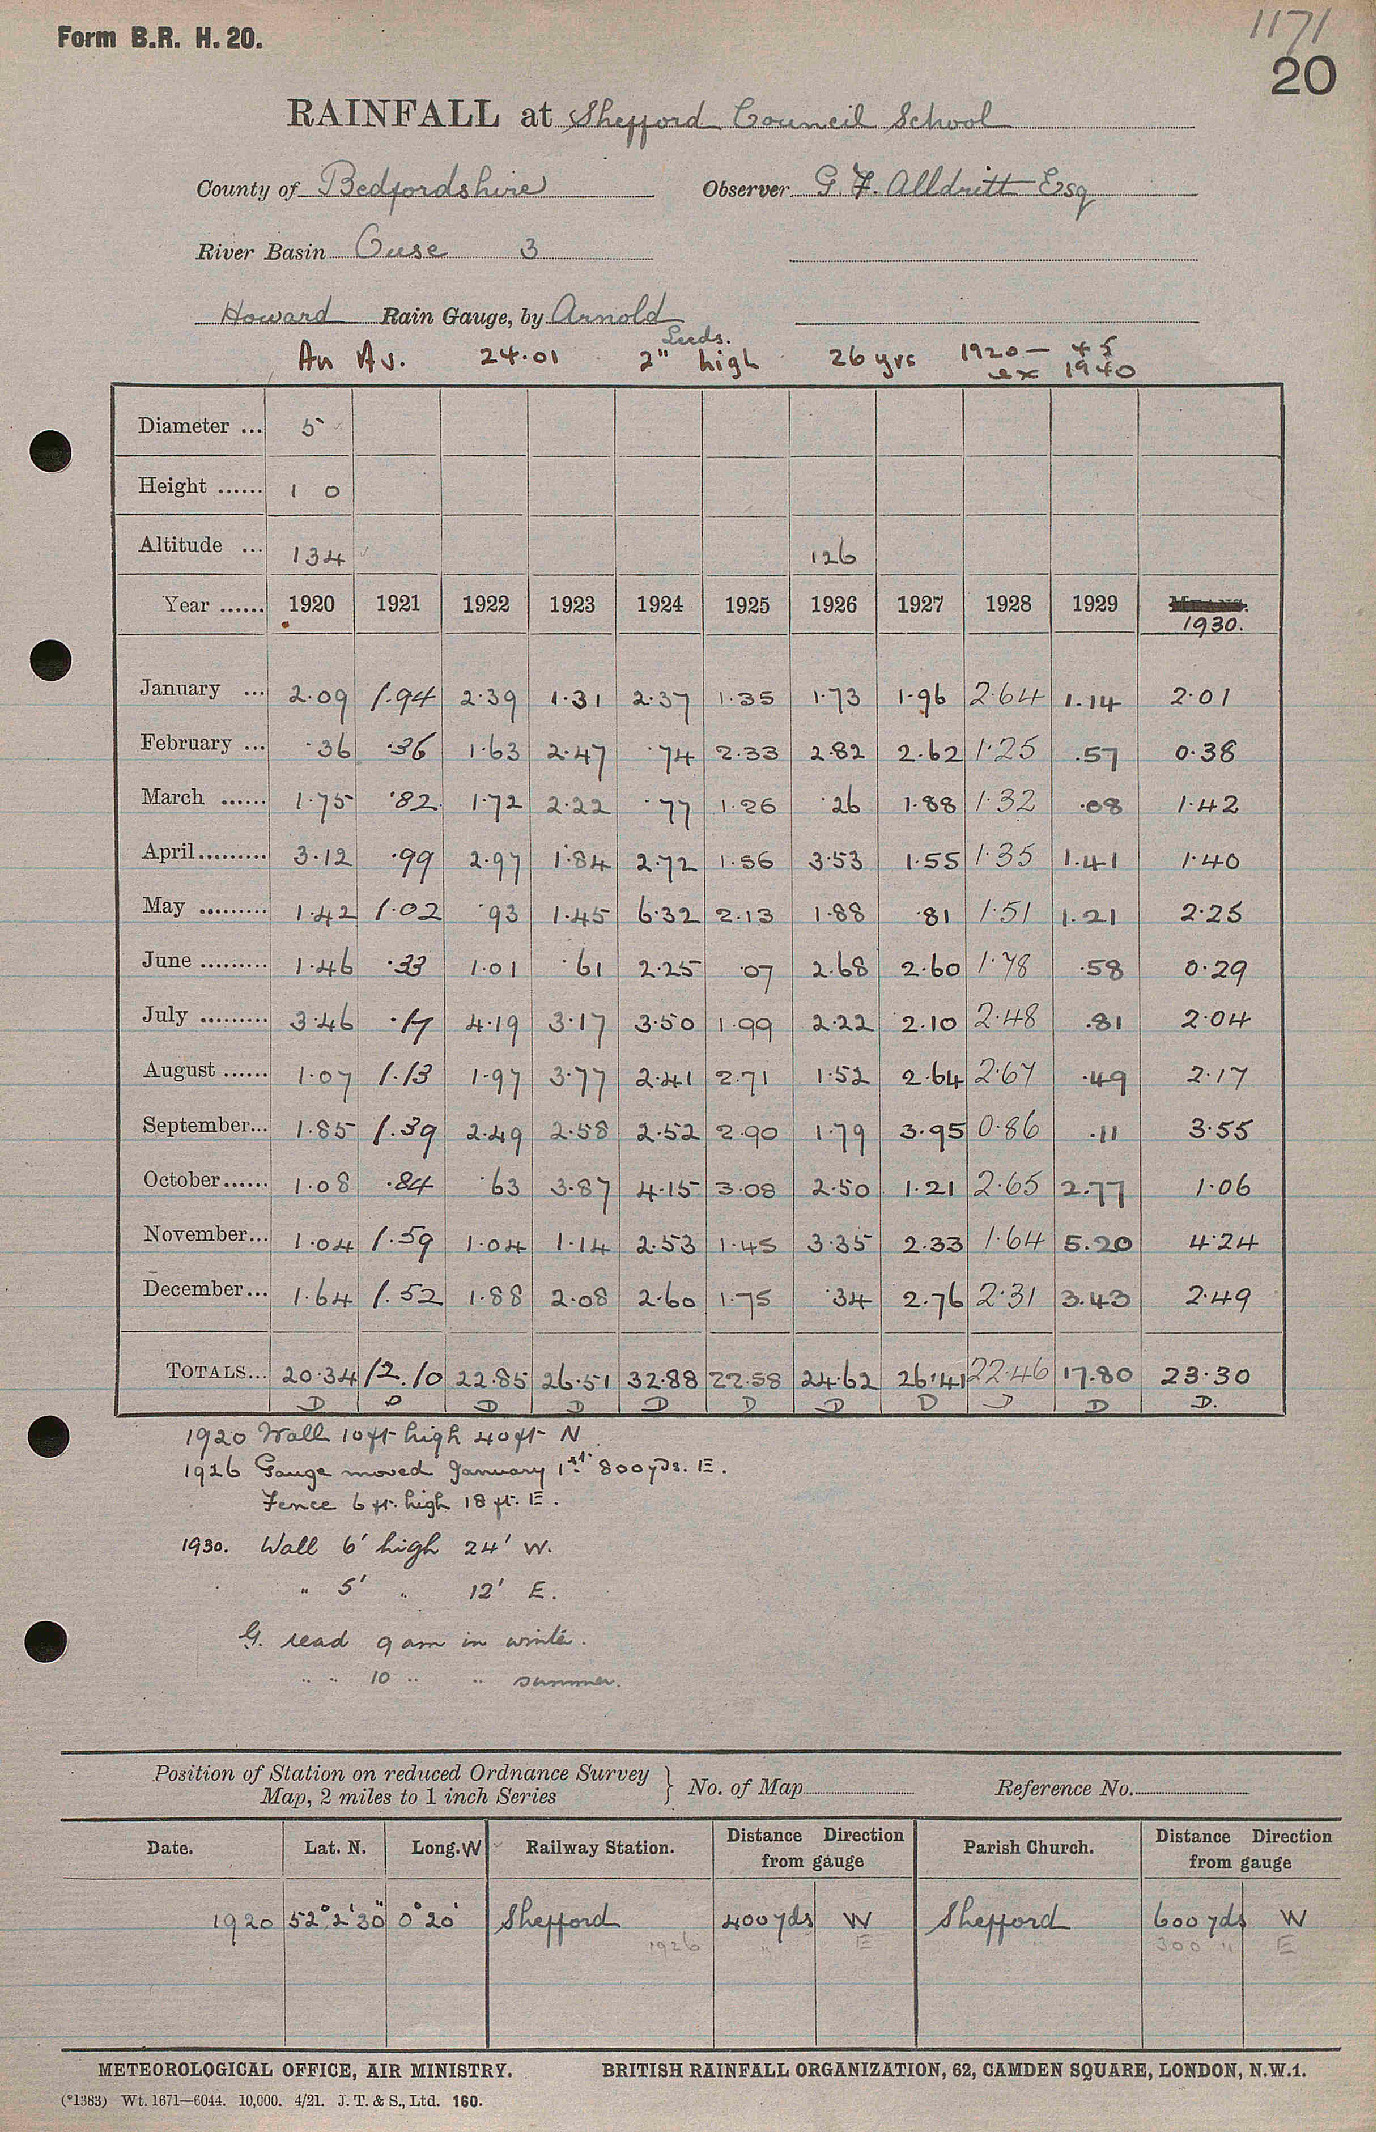 Form B.R. H. 20.
1171
20
RAINFALL at Shefford Council School
County of Bedfordshire Observer G. F. Alldritt Esq
River Basin Ouse 3
Howard Rain Gauge, by Arnold
Leeds.
An Av. 24.01 2" high 26 yrs 1920 – 45
ex 1940
Diameter ... 5
Height ...... 1 0
Altitude ... 134 126
Year ...... 1920 1921 1922 1923 1924 1925 1926 1927 1928 1929 1930.
January ... 2.09 1.94 2.39 1.31 2.37 1.35 1.73 1.96 2.64 1.14 2.01
February ... .36 .36 1.63 2.47 .74 2.33 2.82 2.62 1.25 .57 0.38
March ...... 1.75 .82 1.72 2.22 .77 1.26 .26 1.88 1.32 .08 1.42
April......... 3.12 .99 2.97 1.84 2.72 1.56 3.53 1.55 1.35 1.41 1.40
May ......... 1.42 1.02 .93 1.45 6.32 2.13 1.88 .81 1.51 1.21 2.25
June ......... 1.46 .33 1.01 .61 2.25 .07 2.68 2.60 1.78 .58 0.29
July ......... 3.46 .17 4.19 3.17 3.50 1.99 2.22 2.10 2.48 .81 2.04
August ...... 1.07 1.13 1.97 3.77 2.41 2.71 1.52 2.64 2.67 .49 2.17
September... 1.85 1.39 2.49 2.58 2.52 2.90 1.79 3.95 0.86 .11 3.55
October...... 1.08 .84 .63 3.87 4.15 3.08 2.50 1.21 2.65 2.77 1.06
November... 1.04 1.59 1.04 1.14 2.53 1.45 3.35 2.33 1.64 5.20 4.24
December... 1.64 1.52 1.88 2.08 2.60 1.75 .34 2.76 2.31 3.43 2.49
TOTALS... 20.34 12.10 22.85 26.51 32.88 22.58 24.62 26.41 22.46 17.80 23.30
D D D D D D D D D D D.
1920 Wall 10ft high 40ft N
1926 Gauge moved January 1st 800yds. E.
Fence 6 ft. high 18 ft. E.
1930. Wall 6' high 24' W.
" 5' " 12' E.
G. read 9 am in winter.
" " 10 " " summer.
Position of Station on reduced Ordnance Survey
Map, 2 miles to 1 inch Series } No. of Map Reference No.
Date. Lat. N. Long. W Railway Station. Distance Direction from gauge Parish Church. Distance Direction from gauge
1920 52° 2' 30" 0° 20' Shefford 400 yds W Shefford 600 yds W
1926 " E 300 " E
METEOROLOGICAL OFFICE, AIR MINISTRY. BRITISH RAINFALL ORGANIZATION, 62, CAMDEN SQUARE, LONDON, N.W.1.
(*1383) Wt. 1671—6044. 10,000. 4/21. J. T. & S., Ltd. 160.